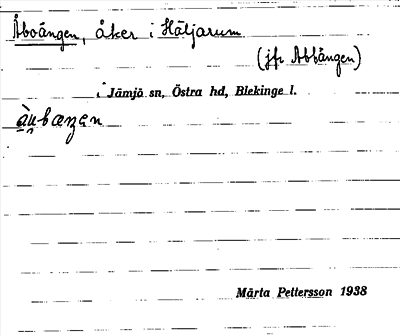 Åboängen, åker i Häljarum
(jfr Abbängen)
i Jämjö sn, Östra hd, Blekinge l.
Märta Pettersson 1938